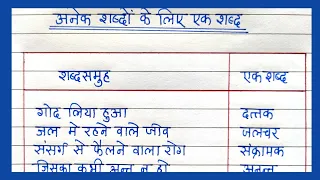 अनेक शब्दों के लिए एक शब्द
शब्दसमुह एक शब्द
गोद लिया हुआ दत्तक
जल मे रहने वाले जीव जलचर
संसर्ग से फैलने वाला रोग संक्रामक
जिसका कभी अन्त न हो अनन्त